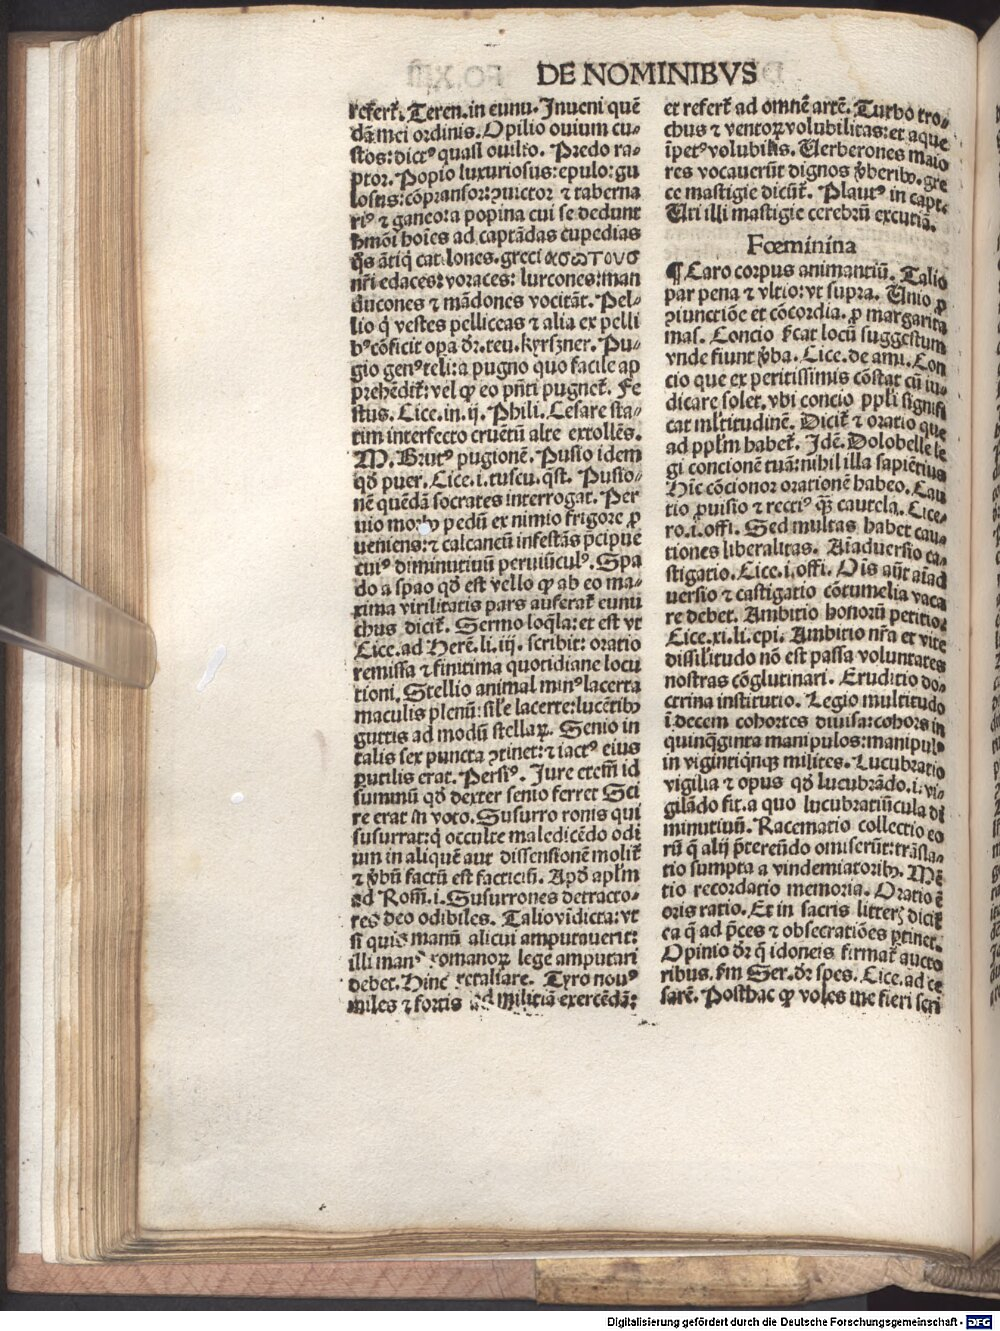 DE NOMINIBVS
refert̄. Teren. in eunu. Inueni quē
dā mei ordinis. Opilio ouium cu⸗
stos: dictꝰ quasi ouilio. Predo ra⸗
ptor. Popio luxuriosus: epulo: gu
losus: cōpransor: ꝯuictor ⁊ taberna
riꝰ ⁊ ganeo: a popina cui se dedunt
hmōi hoīes ad captādas cupedias
q̄s ātiq̄ catilones. greci ασωτους
nr̄i edaces: voraces: lurcones: man
ducones ⁊ mādones vocitāt. Pel⸗
lio q̄ vestes pelliceas ⁊ alia ex pelli
bꝰ cōficit opa dr̄. teu. kyrszner. Pu⸗
gio genꝰ teli: a pugno quo facile ap
prehēdit̄: vel ꝙ eo pn̄ti pugnet̄. Fe
stus. Cice. in. ij. Phili. Cesare sta⸗
tim interfecto cruētū alte extollēs.
M. Brutꝰ pugionē. Pusio idem
qd̄ puer. Cice. i. tuscu. q̄st. Pusio⸗
nē quēdā socrates interrogat. Per
nio morbꝰ pedū ex nimio frigore ꝓ
ueniens: ⁊ calcaneū infestās p̄cipue
cuiꝰ diminutiuū perniūculꝰ. Spa
do a spao qd̄ est vello ꝙ ab eo ma⸗
xima virilitatis pars auferat̄ eunu
chus dicit̄. Sermo loq̄la: et est vt
Cice. ad Herē. li. iij. scribit: oratio
remissa ⁊ finitima quotidiane locu
tioni. Stellio animal minꝰ lacerta
maculis plenū: sil̄e lacerte: lucētibꝰ
guttis ad modū stellaꝝ. Senio in
talis sex puncta ꝯtinet: ⁊ iactꝰ eius
ꝑutilis erat. Persiꝰ. Iure etem̄ id
summū qd̄ dexter senio ferret Sci
re erat in voto. Susurro ronis qui
susurrat: q̄ occulte maledicēdo odi
um in aliquē aut dissensionē molit̄
⁊ v̄bū factū est facticiū. Apd̄ apl̄m
ad Rom̄. i. Susurrones detracto⸗
res deo odibiles. Talio vīdicta: vt
si quis manū alicui amputauerit:
illi manꝰ romanoꝝ lege amputari
debet. Hinc retaliare. Tyro nouꝰ
miles ⁊ fortis ad militiā exercēdā:
et refert̄ ad omnē artē. Turbo tro⸗
chus ⁊ ventoꝝ volubilitas: et aque
īpetꝰ volubilis. Verberones maio
res vocauerūt dignos v̄beribꝰ. gre
ce mastigie dicūt̄. Plautꝰ in capt.
Uti illi mastigie cerebrū excutiā.
Fœminina
¶ Caro corpus animantiū. Talio
par pena ⁊ vltio: vt supra. Unio ꝓ
ꝯiunctiōe et cōcordia. ꝓ margarita
mas. Concio sc̄at locū suggestum
vnde fiunt v̄ba. Cice. de ami. Con
cio que ex peritissimis cōstat cū iu⸗
dicare solet. vbi concio ppl̄i signifi
cat ml̄titudinē. Dicit̄ ⁊ oratio que
ad ppl̄m habet̄. Idē. Dolobelle le
gi concionē tuā: nihil illa sapiētius
Hīc cōcionor orationē habeo. Cau
tio ꝓuisio ⁊ rectiꝰ qꝫ̄ cautela. Cice⸗
ro. i. offi. Sed multas habet cau⸗
tiones liberalitas. Aīaduersio ca⸗
stigatio. Cice. i. offi. Oīs aūt aīad
uersio ⁊ castigatio cōtumelia vaca
re debet. Ambitio honorū petitio:
Cice. xi. li. epi. Ambitio nr̄a et vite
dissilitudo nō est passa voluntates
nostras cōglutinari. Eruditio do⸗
ctrina institutio. Legio multitudo
ī decem cohortes diuisa: cohors in
quinq̄ginta manipulos: manipulꝰ
in vigintiqnqꝫ milites. Lucubratio
vigilia ⁊ opus qd̄ lucubrādo. i. vi⸗
gilādo fit. a quo lucubratiūcula di
minutiuū. Racematio collectio eo
rū q̄ alij p̄tereūdo omiserūt: trāsla⸗
tio sumpta a vindemiatoribꝰ. Mē
tio recordatio memoria. Oratio ē
oris ratio. Et in sacris litterꝭ dicit̄
ea q̄ ad p̄ces ⁊ obsecratiōes ꝑtinet.
Opinio dr̄ q̄ idoneis firmat̄ aucto
ribus. sm̄ Ser. dr̄ spes. Cice. ad ce
sarē. Posthac ꝙ voles me fieri scri
Digitalisierung gefördert durch die Deutsche Forschungsgemeinschaft - DFG